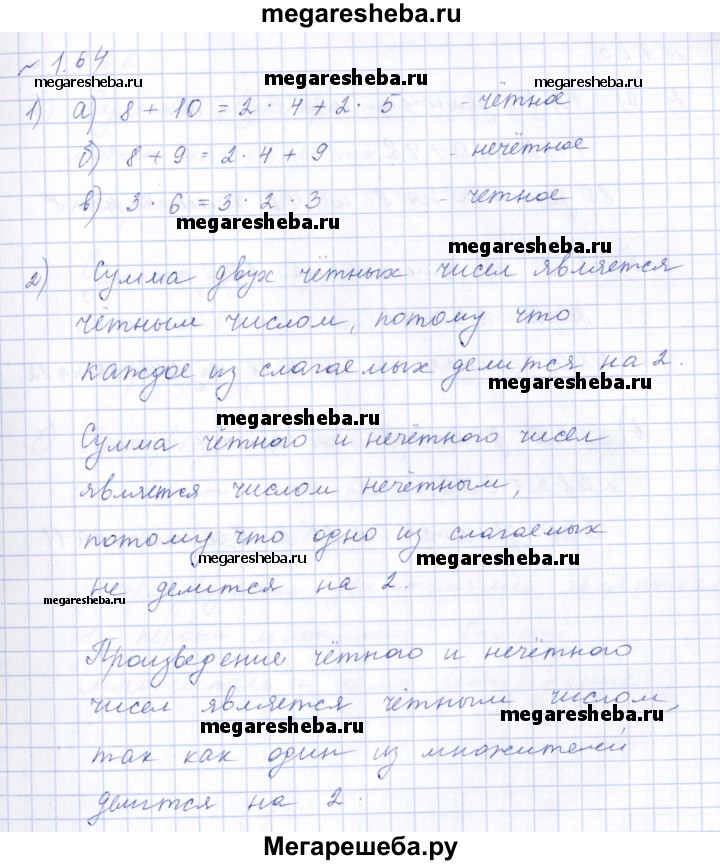 megaresheba.ru
№ 1.64
megaresheba.ru
megaresheba.ru
megaresheba.ru
1) а) 8 + 10 = 2 · 4 + 2 · 5 - чётное
б) 8 + 9 = 2 · 4 + 9 - нечётное
в) 3 · 6 = 3 · 2 · 3 - четное
megaresheba.ru
megaresheba.ru
2) Сумма двух чётных чисел является
чётным числом, потому что
каждое из слагаемых делится на 2.
megaresheba.ru
megaresheba.ru
Сумма чётного и нечётного чисел
является числом нечётным,
потому что одно из слагаемых
megaresheba.ru
megaresheba.ru
не делится на 2.
megaresheba.ru
Произведение чётного и нечётного
чисел является чётным числом,
megaresheba.ru
megaresheba.ru
так как один из множителей
делится на 2.
Мегарешеба.ру